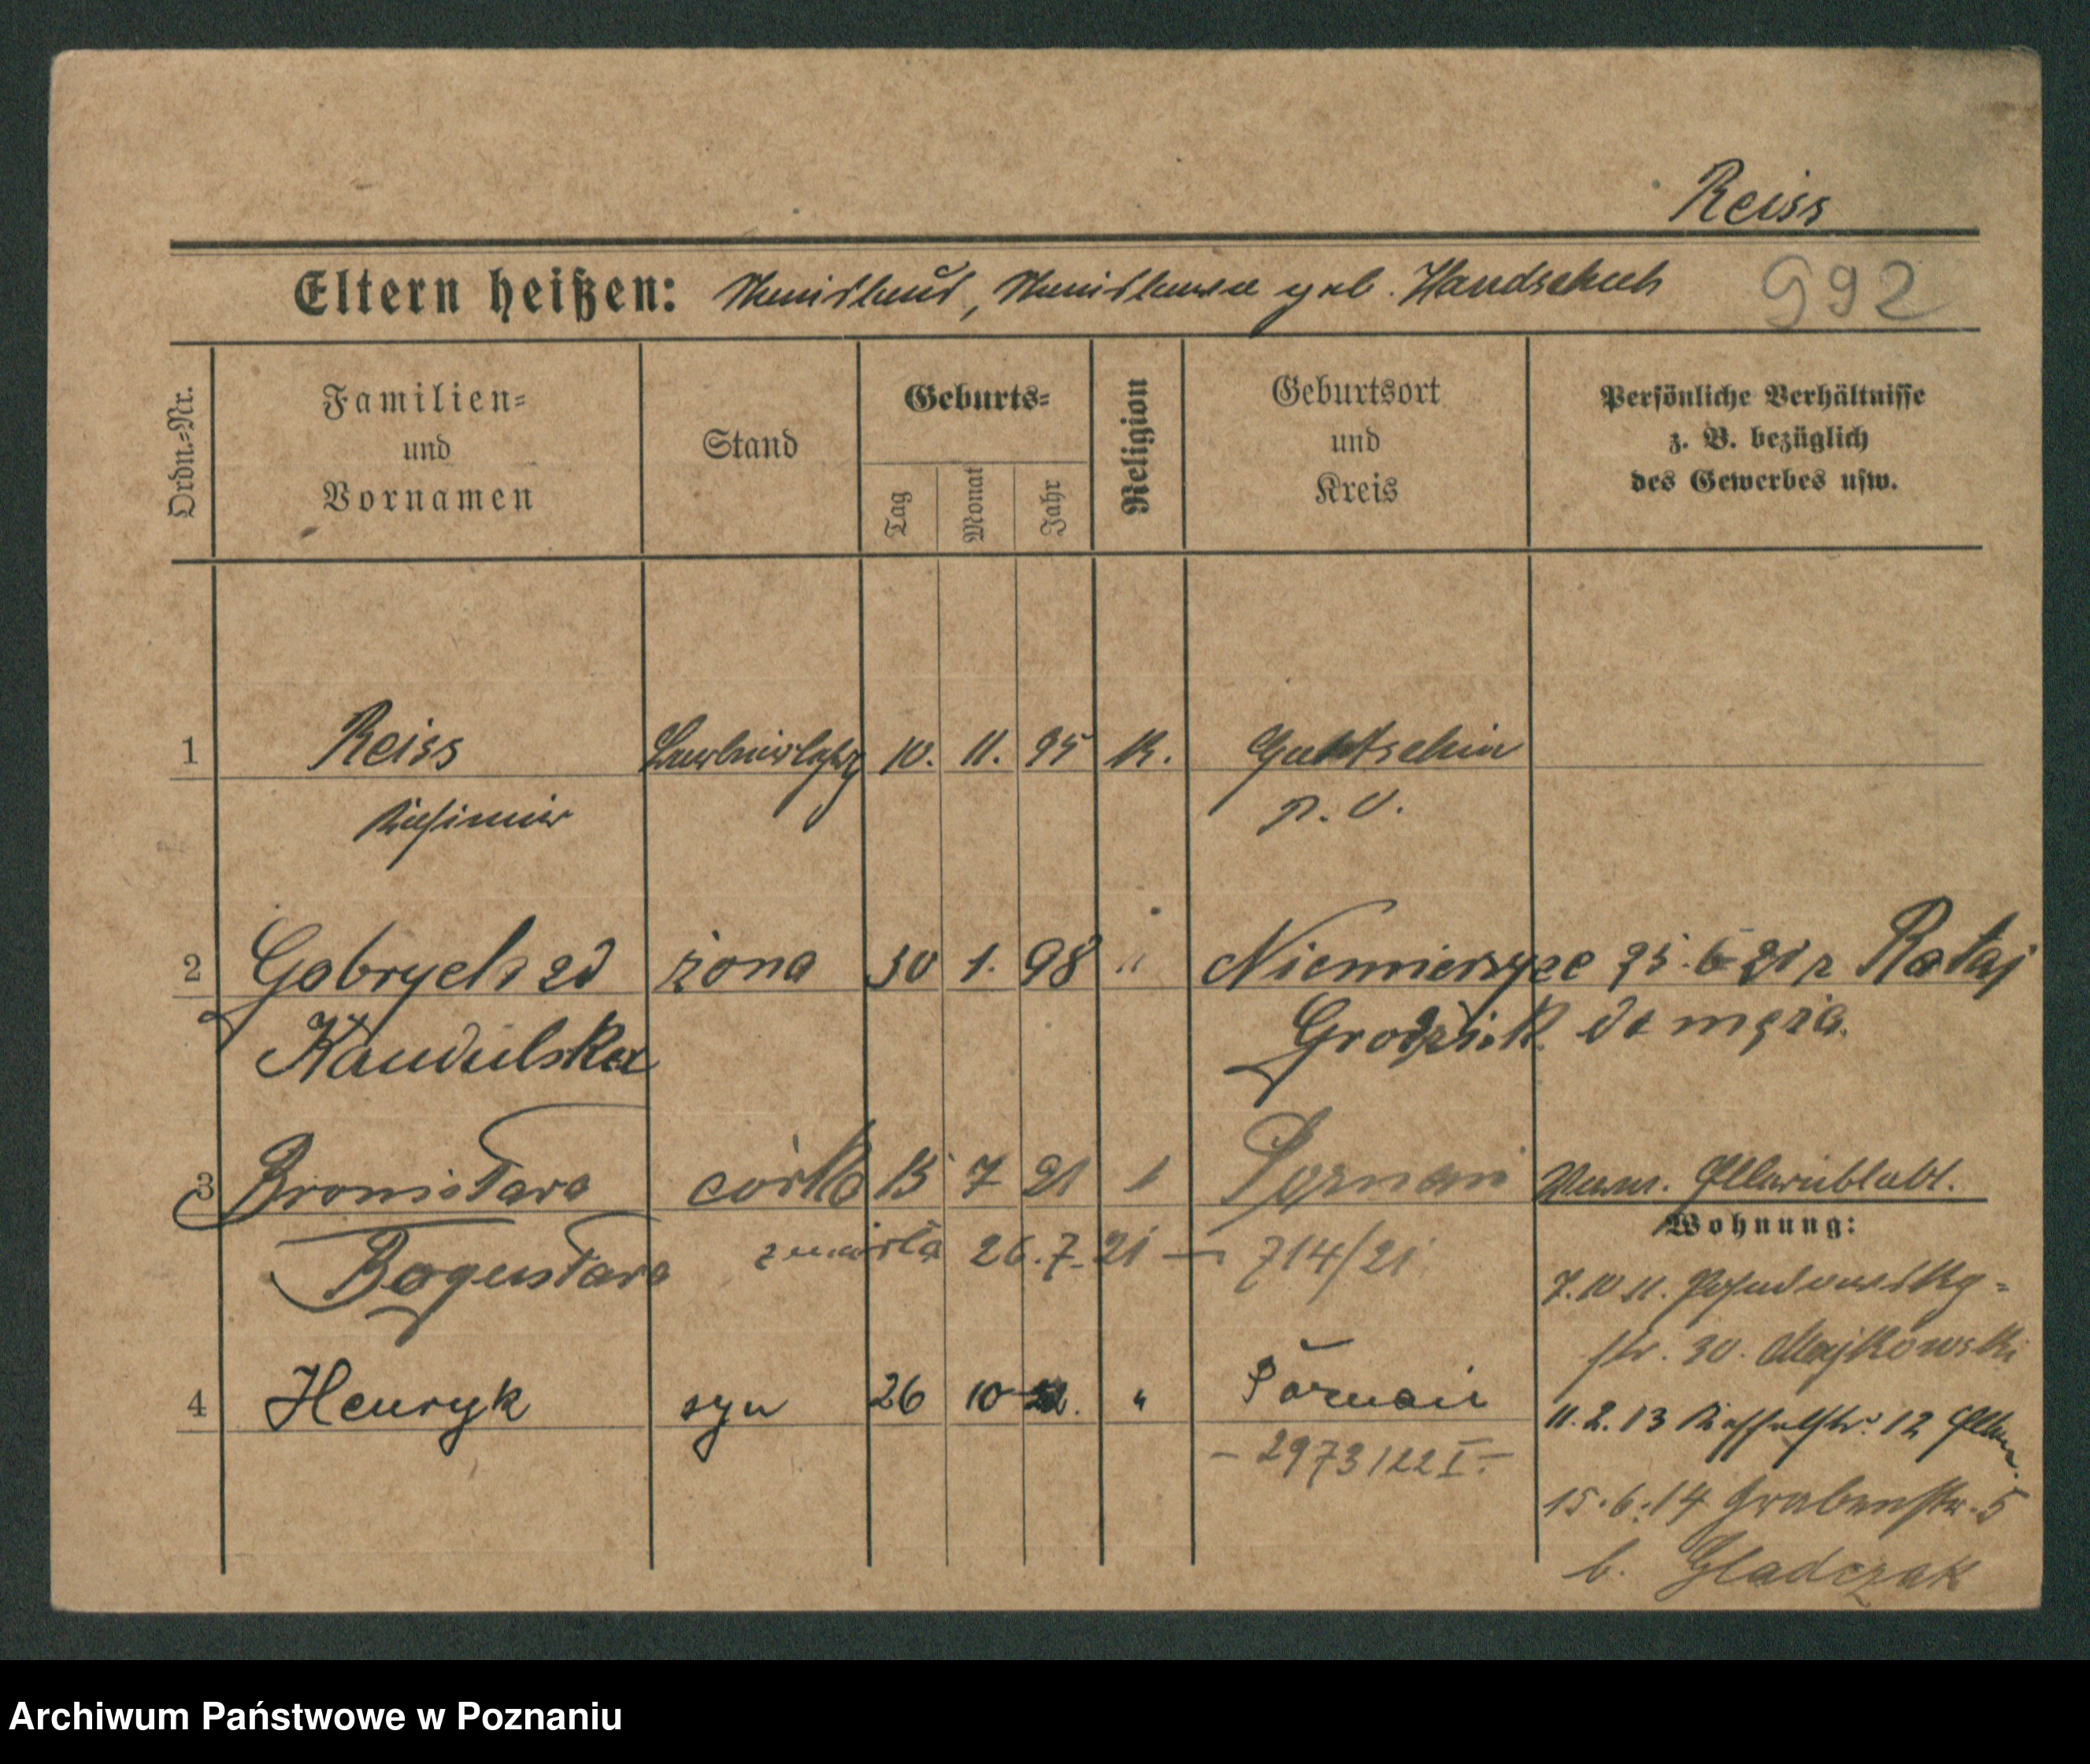 Reiss
Eltern heißen: Stanislaus, Stanislawa geb. Handschuh 992
Ordn.=Nr.
Familien=
und
Vornamen
Stand
Geburts=
Tag
Monat
Jahr
Religion
Geburtsort
und
Kreis
Persönliche Verhältnisse
z. B. bezüglich
des Gewerbes usw.
1 Reiss 10. 11. 95 K. Guttschin
Kasimir P. O.
2 Gabryel zd żona 30 1. 98 " 25.6 21 z Rataj
Kandulska Grodzisk do męża.
3 Bronisława córka 15 7 21 Poznań
Bogusława zmarła 26.7.21 – 714/21
Wohnung:
7.10 11.
str. 30. Majkowski
4 Henryk syn 26 10 22. " Poznań
– 2973/22 I. –
11.2.13 12
15.6.14 Grabenstr. 5
b. Gladczak
Archiwum Państwowe w Poznaniu